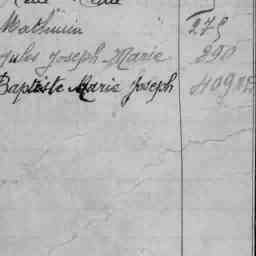 Mathurin " 275
Jules Joseph Marie 290
Baptiste Marie Joseph 409